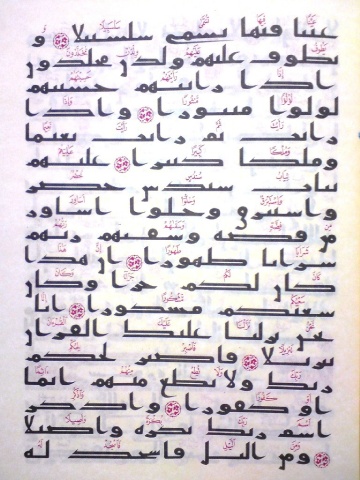 عينا فيها تسمى سلسبيلا و
يطوف عليهم ولدن مخلدون
اذا رايتهم حسبتهم
لولوا منثورا واذا
رايت ثم رايت نعيما
وملكا كبيرا عليهم
ثياب سندس خضر
واستبرق وحلوا اساور
من فضه وسقيهم ربهم
شرابا طهورا ان هذا
كان لكم جزا وكان
سعيكم مشكورا انا
نحن نزلنا عليك القران
تنزيلا فاصبر لحكم
ربك ولا تطع منهم اثما
او كفورا واذكر
اسم ربك بكره واصيلا
ومن اليل فاسجد له